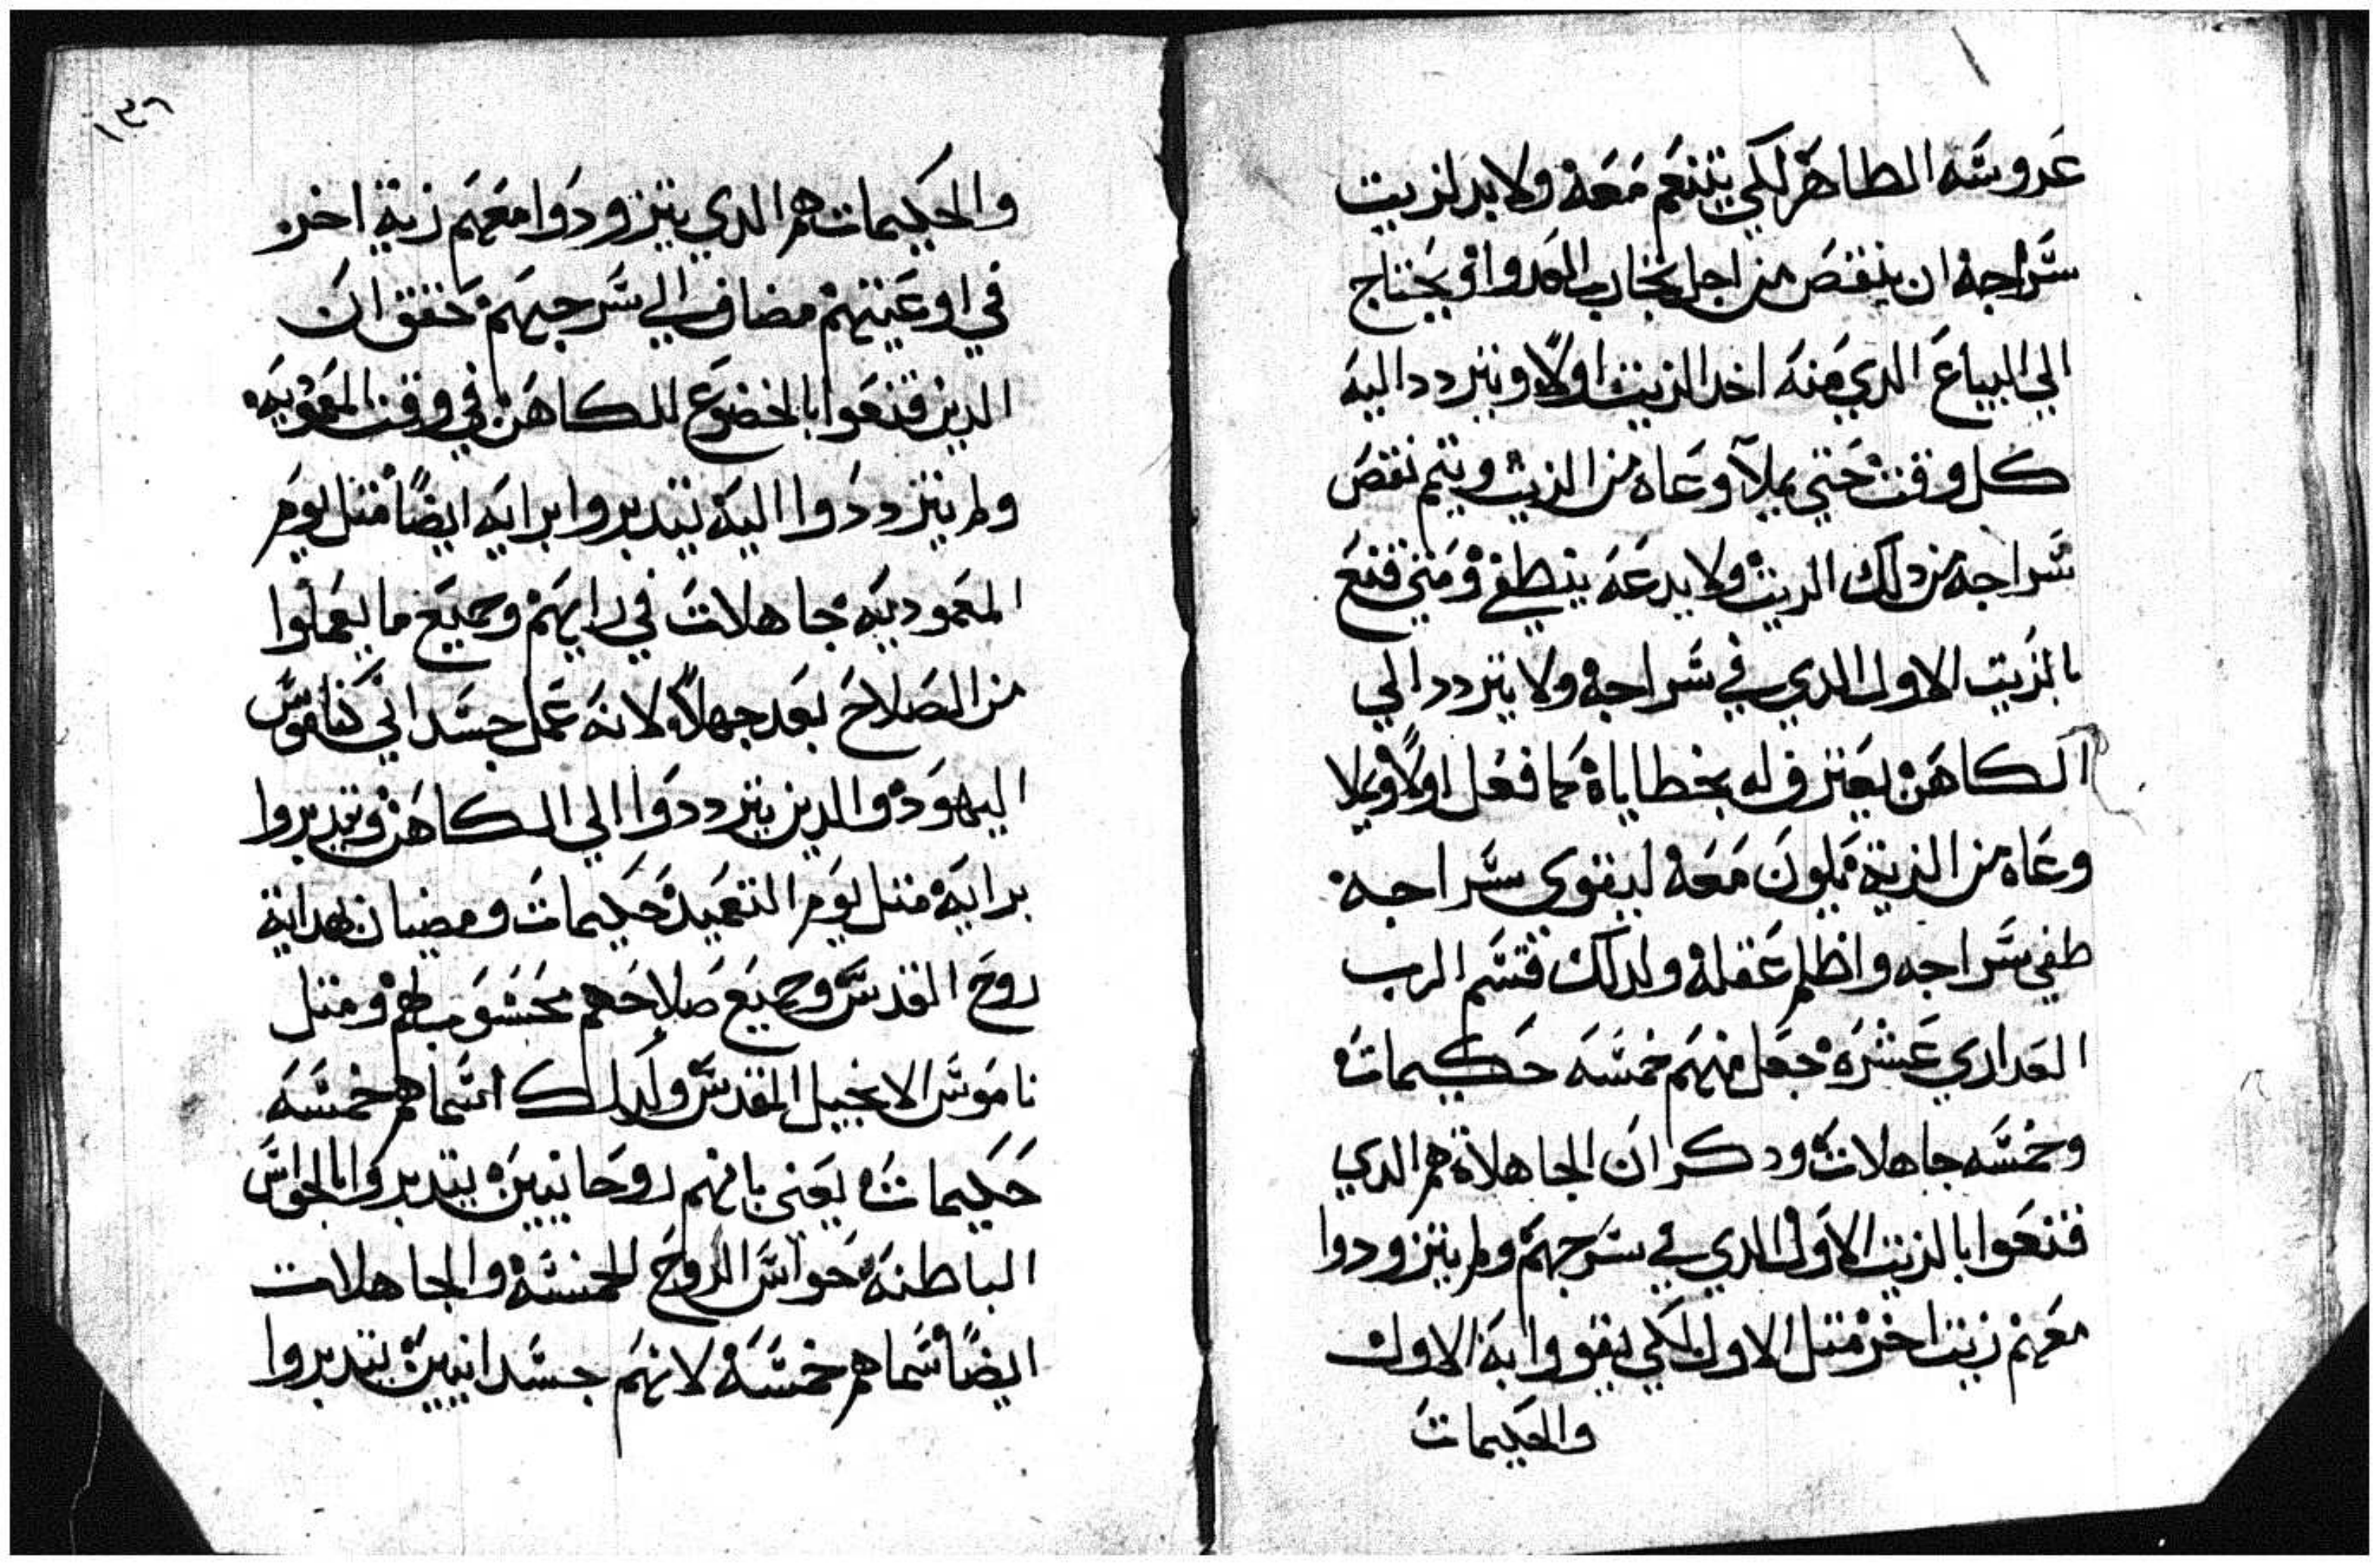 عروسه الطاهر لكي يتنعم معه ولابد لزيت
سراجه ان ينقص من اجل تجارب العدوا ويحتاج
الي البياع الدي منه اخد الزيت اولا ويتردد اليه
كل وقت حتي يملا وعاه من الزيت ويتم نقص
سراجه من دلك الزيت ولا يدعه ينطفي ومتي قنع
بالزيت الاول الدي في سراجه ولا يتردد الي
الكاهن يعترف له بخطاياه كما فعل اولا ويملا
وعاه من الزيت يكون معه ليقوي سراجه
طفي سراجه واظلم عقله ولدلك قسم الرب
العداري عشره جعل منهم خمسه حكيمات
وخمسه جاهلات ودكر ان الجاهلاة هم الدي
قنعوا بالزيت الاول الدي في سرجهم ولم يتزودوا
معهم زيت اخر متل الاول لكي يقووا به الاول
والحكيمات
١٣٦
والحكيمات هم الدي يتزودوا معهم زيت اخر
في اوعيتهم مضاف الي سرجيهم حقق ان
الدين قنعوا بالخضوع للكاهن في وقت المعموديه
ولم يترددوا اليه يتدبروا برايه ايضا متل يوم
المعموديه جاهلات في رايهم وجميع ما يعملوا
من الصلاح يعد جهلا لانه عمل جسداني كناموس
اليهود والدين يترددوا الي الكاهن ويتدبروا
برايه متل يوم التعميد حكيمات ومضيان بهداية
روح القدس وجميع صلاحهم محسوب لهم ومتل
ناموس الانجيل المقدس ولدلك اسماهم خمسه
حكيمات يعني بانهم روحانيين يتدبروا بالحواس
الباطنه حواس الروح الخمسه والجاهلات
ايضا سماهم خمسه لانهم جسدانيين يتدبروا